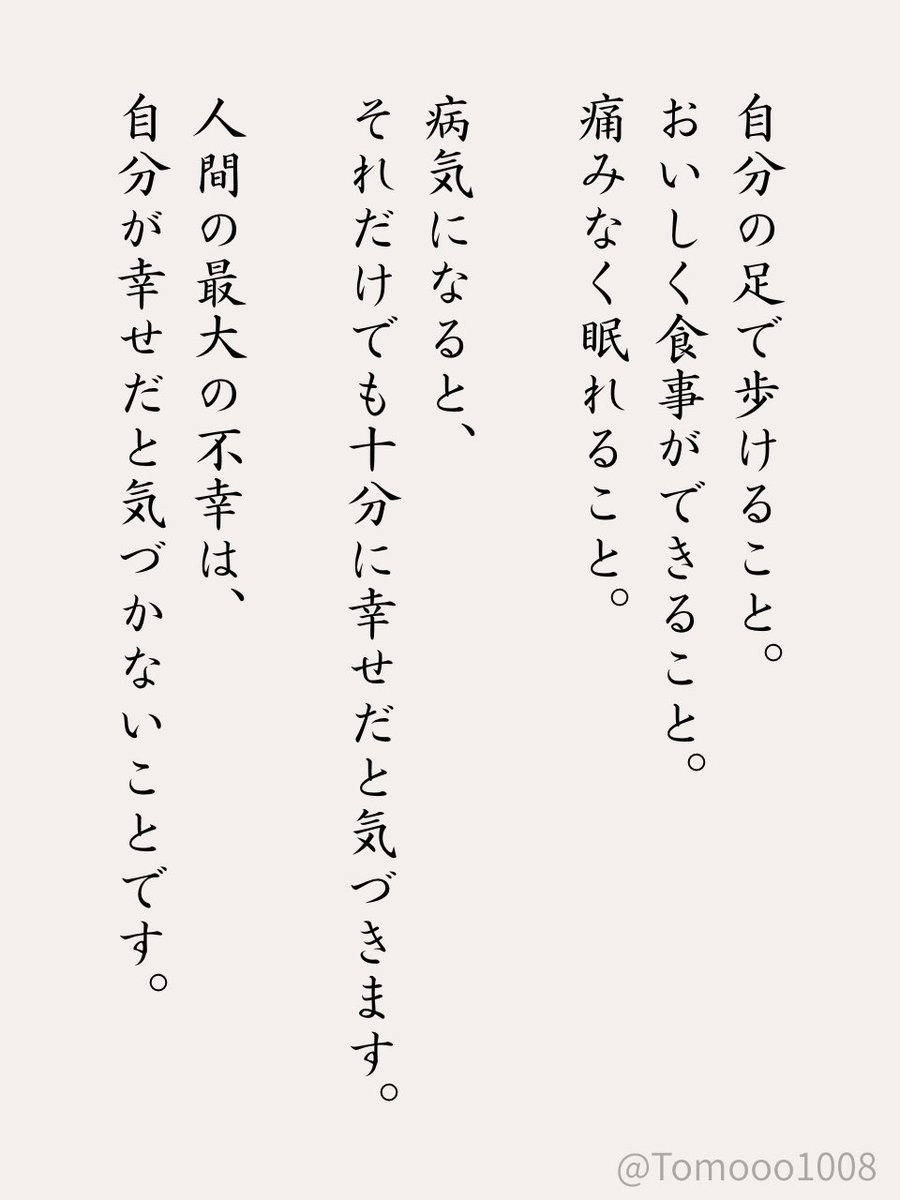 自分の足で歩けること。
おいしく食事ができること。
痛みなく眠れること。
病気になると、
それだけでも十分に幸せだと気づきます。
人間の最大の不幸は、
自分が幸せだと気づかないことです。
@Tomooo1008